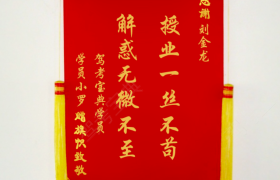 感谢刘金龙
授业一丝不苟
解惑无微不至
驾考宝典学员
学员小罗赠旗致敬